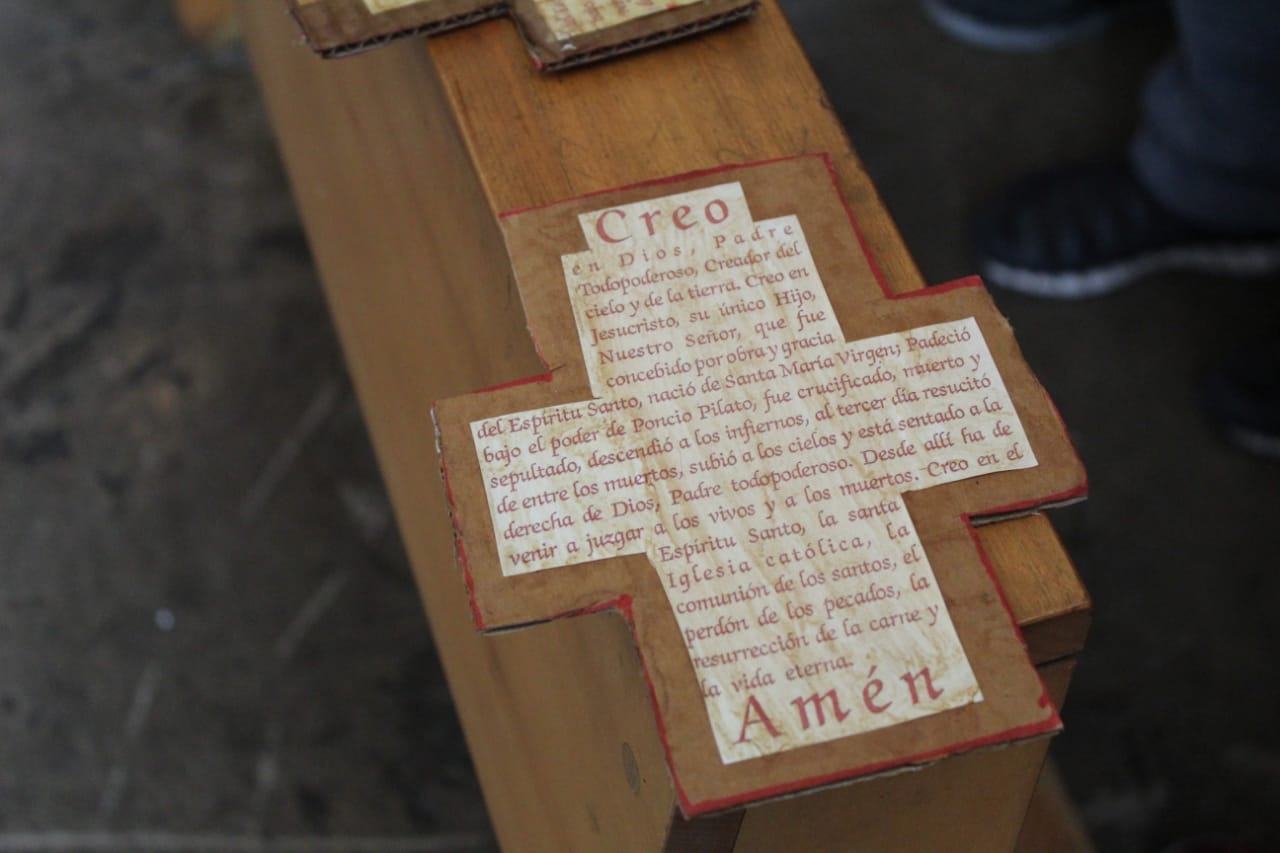 Creo
en Dios, Padre
Todopoderoso, Creador del
cielo y de la tierra. Creo en
Jesucristo, su único Hijo,
Nuestro Señor, que fue
concebido por obra y gracia
del Espíritu Santo, nació de Santa María Virgen; Padeció
bajo el poder de Poncio Pilato, fue crucificado, muerto y
sepultado, descendió a los infiernos, al tercer día resucitó
de entre los muertos, subió a los cielos y está sentado a la
derecha de Dios, Padre todopoderoso. Desde allí ha de
venir a juzgar a los vivos y a los muertos. Creo en el
Espíritu Santo, la santa
Iglesia católica, la
comunión de los santos, el
perdón de los pecados, la
resurrección de la carne y
la vida eterna.
Amén